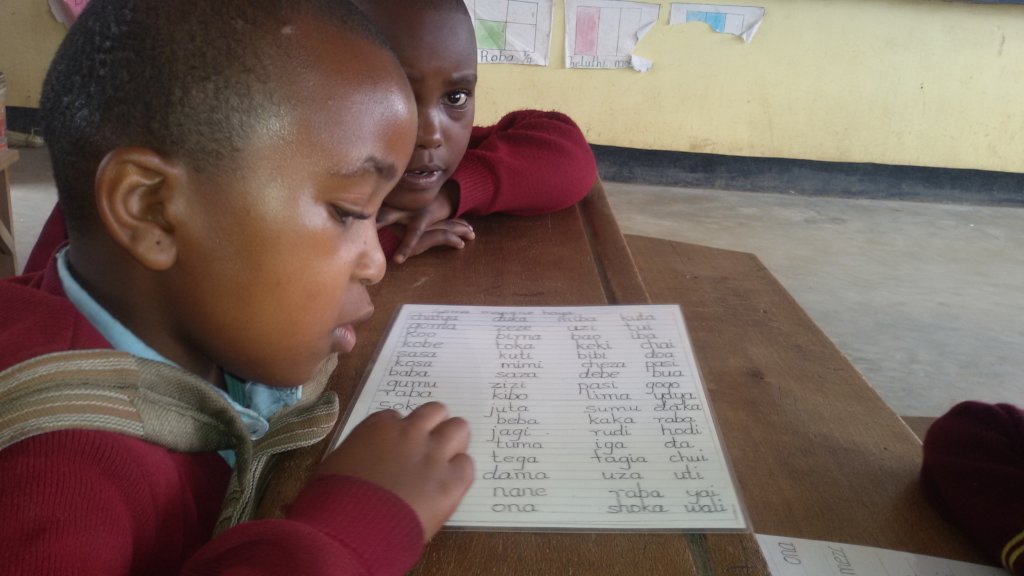 Roba ¼
chukua duka miba kuta
goma zeze uzi tui
koo bima bao iba
kobe toka keki chai
sasa kuti bibi doa
kosa mimi cheza pasi
baba saza debe bua
gumu zizi pasi gogo
raba kibo lima
juta sumu
beba kaka
jagi rudi hodi
tuma iga da
tega fagia chui
dama uza uti
nane raba yai
ona shoka wali
ona